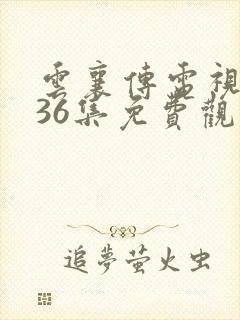 雲襄傳電視
36集免費觀
追夢萤火虫